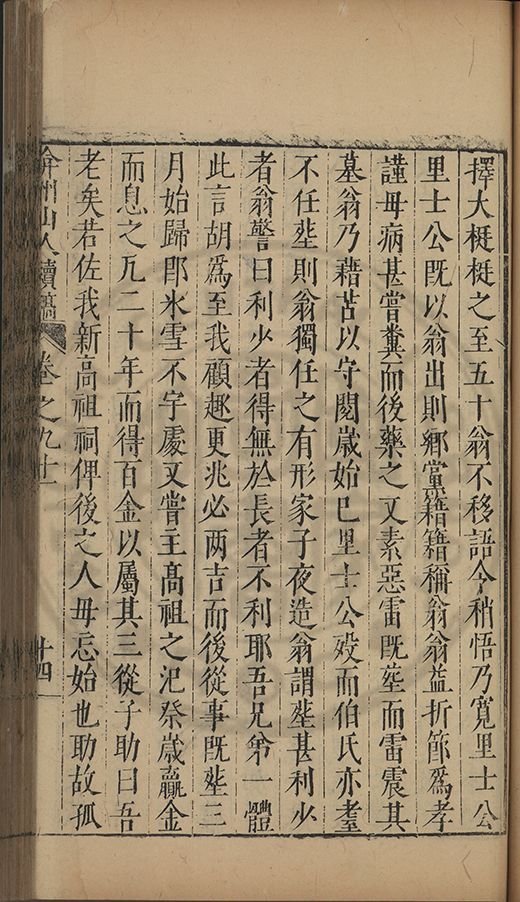 擇大梃梃之至五十翁不移語令稍悟乃寬里士公
里士公既以翁出則鄉黨籍籍稱翁翁益折節爲孝
謹母病甚嘗糞而後藥之又素惡雷既塟而雷震其
墓翁乃藉苫以守閱歲始巳里士公歿而伯氏亦耄
不任塟則翁獨任之有形家子夜造翁謂塟甚利少
者翁警曰利少者得無於長者不利耶吾兄弟一體
此言胡爲至我顧趣更兆必两吉而後從事既塟三
月始歸郎氷雪不宇處又嘗主髙祖之祀祭歲贏金
而息之凡二十年而得百金以屬其三從子助曰吾
老矣若佐我新高祖祠俾後之人毋忘始也助故孤
弇州山人續稿 卷之九十一 十四